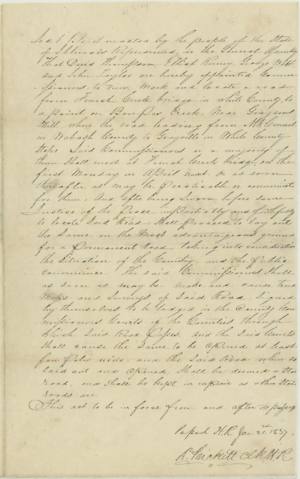 Sec 1. Be it enacted by the people of the State
of Illinois represented in the General Assembly
That Thompson,
and John Taylor are hereby appointed Commis
sioners to View, Mark and locate a road
from French Creek bridge in White County to
a point on Creek, Near Grayson
the road leading from Mt Carmel
in Wabash County to Grayville in White County
Said Commissioners or a majority of
them Shall meet at French Creek bridge, on the
first Monday in April next or as soon
thereafter as may be practicable or convenient
for them, and after being Sworn before some
Justice of the Peace impartially and faithfully
to locate Said Road shall proceed to lay out
the Same on the Most advantageous ground
for a Permanent Road, taking into consideration
the Situation of the Country and the public
convenience. The said Commissioners shall
as soon as may be make and cause two
Maps and Surveys of Said Road, Signed
by themselves to be lodged in the County Com
missioners Courts of the Counties through
which Said Road passes, and the said Courts
shall cause the Same to be opened at least
feet wide, and the said Road when so
laid out and opened, shall be deemed a State
road, and shall be kept in repair as other State
roads are.
This act to be in force from and after its passage
Passed H.R. Jan 21 1837.
D. Prickett Clk H.R.